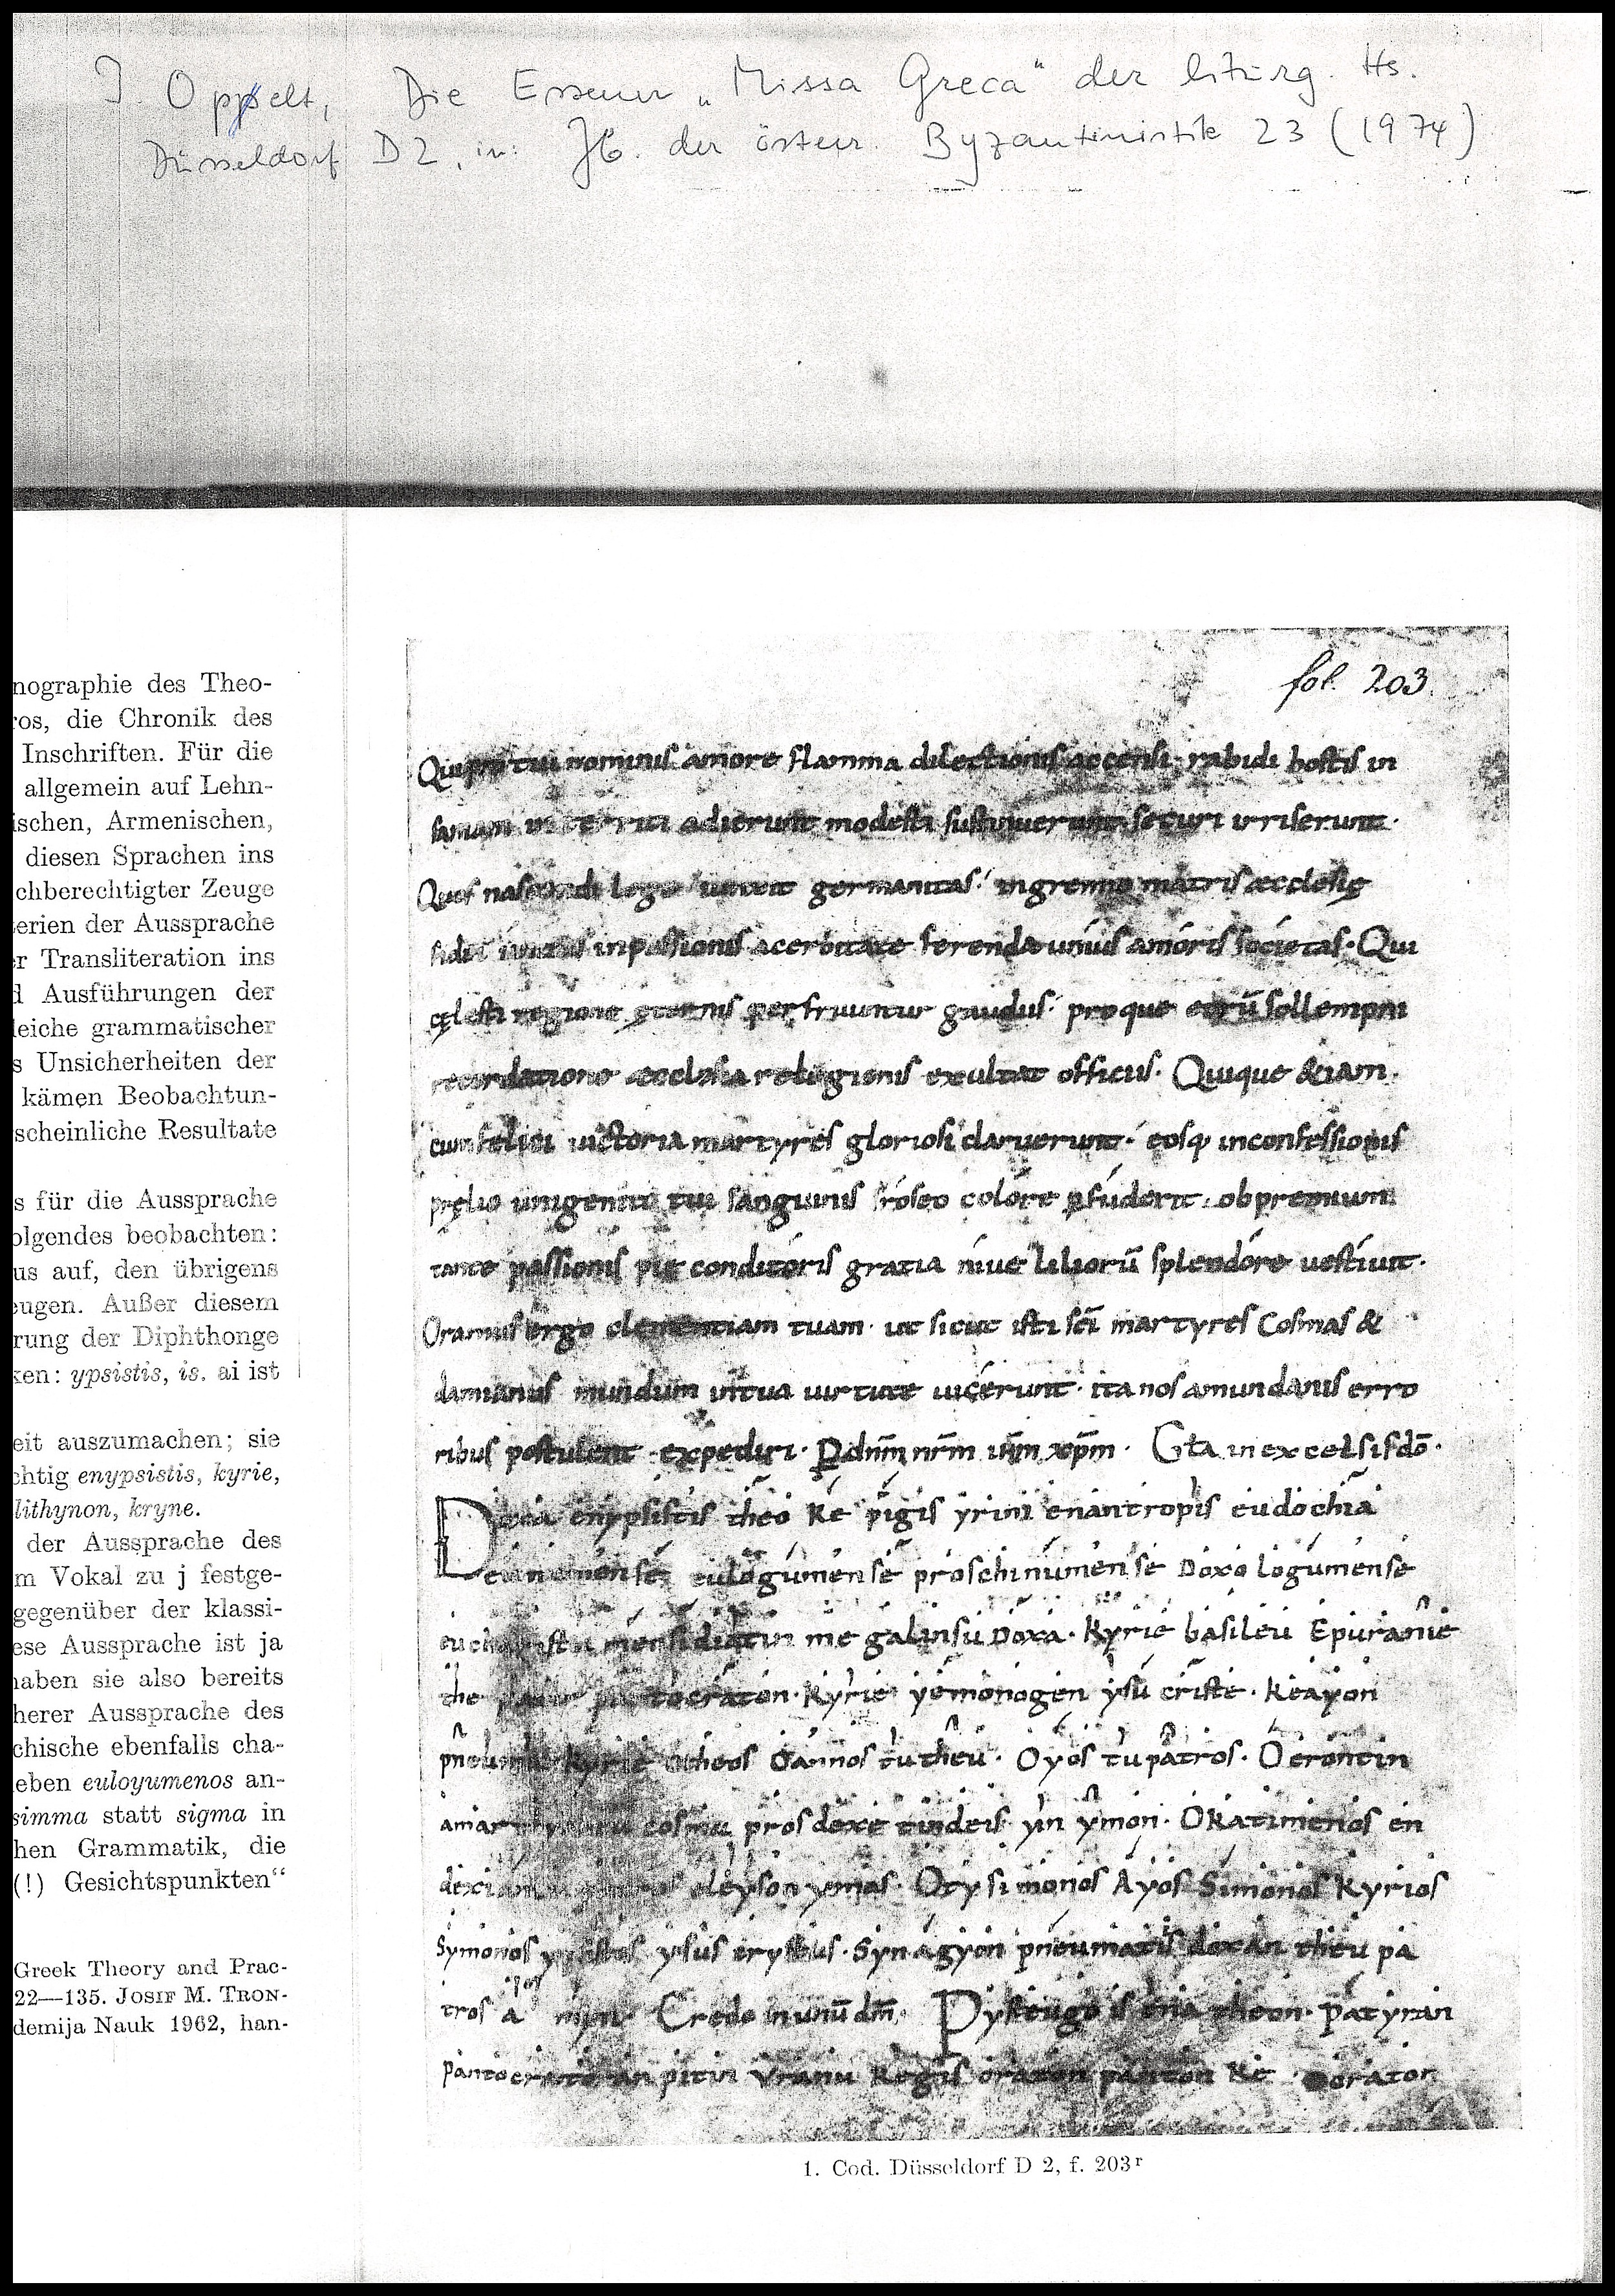 I. Oppelt, Die Essener „Missa Greca“ der liturg. Hs.
Düsseldorf D 2, in: Jb. der österr. Byzantinistik 23 (1974)
nographie des Theo-
ros, die Chronik des
Inschriften. Für die
allgemein auf Lehn-
ischen, Armenischen,
diesen Sprachen ins
chberechtigter Zeuge
erien der Aussprache
r Transliteration ins
d Ausführungen der
leiche grammatischer
s Unsicherheiten der
kämen Beobachtun-
scheinliche Resultate
s für die Aussprache
olgendes beobachten:
us auf, den übrigens
eugen. Außer diesem
rung der Diphthonge
ken: ypsistis, is. ai ist
eit auszumachen; sie
chtig enypsistis, kyrie,
lithynon, kryne.
der Aussprache des
m Vokal zu j festge-
gegenüber der klassi-
ese Aussprache ist ja
haben sie also bereits
herer Aussprache des
chische ebenfalls cha-
eben euloyumenos an-
simma statt sigma in
hen Grammatik, die
(!) Gesichtspunkten“
Greek Theory and Prac-
22—135. Josif M. Tron-
demija Nauk 1962, han-
fol. 203.
Qui pro tui nominis amore flamma dilectionis accensi · rabidi hostis in
saniam interriti adierunt modesti sustinuerunt securi irriserunt ·
Quos nascendi lege iunxit germanitas · in gremio matris æcclesię
fidei in passionis acerbitate ferenda unius amoris societas · Qui
cęlesti regione ęternis perfruuntur gaudiis · proque eorū sollempni
recordatione æcclesia religionis exultat officiis · Quique &iam ·
cum felici uictoria martyres gloriosi claruerunt · eosq in confessionis
pręlio unigenite tui sanguinis roseo colore ob premium
tante passionis pie conditoris gratia niue liliorū splendore uestiuit ·
Oramus ergo clementiam tuam · ut sicut isti sc̄i martyres Cosmas &
damianus mundum in tua uirtute uicerunt · ita nos a mundanis erro
ribus postulent expediri · P dn̄m nr̄m ih̄m xp̄m · Gła in excelsis dō ·
Doxa enypsistis theo Ke pigis yrini enantropis eudochia
eulogumense proschinumense Doxo logumense
me galinsu Doxa · Kyrie basileu Epuranie
the pantocraton · Kyrie yemonogen ysu criste · Keayon
pneuma Kyrie otheos Oamnos tu theu · Oyos tu patros · O erontin
cosmu pros dexe tindeis yin ymon · OKatimenos en
eleyson ymas · Oty si monos Ayos Simonos Kyrios
Symonos ypsistos ysus crystus · Syn agyon pneumatis doxan theu pa
tros a myn Credo in unū dm̄ · Pysteugo is ena theon · patyran
pantocrato ran pitin Vranu Kegis oraton panton Ke aoraton
1. Cod. Düsseldorf D 2, f. 203r